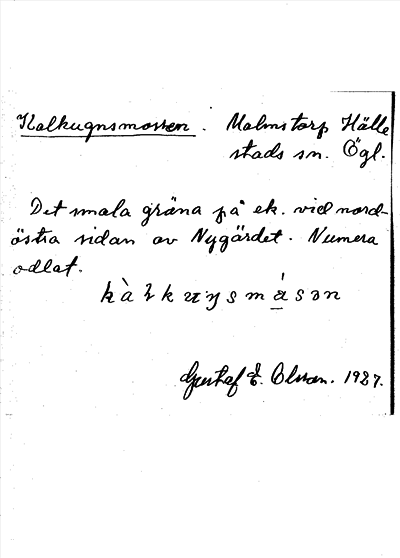 Kalkugnsmossen. Malmstorp Hälle
stads sn. Ögl.
Det smala gräna på ek. vid nord-
östra sidan av Nygärdet. Numera
odlat.
Gustaf E. Olsson. 1927.